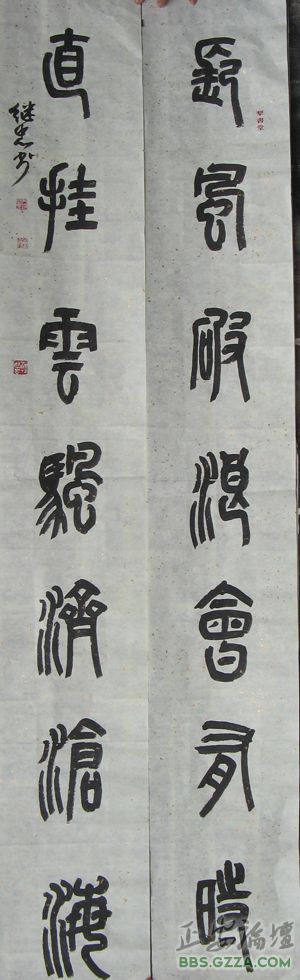 長風破浪會有時
直挂雲颿濟滄海
正安論壇
BBS.GZZA.COM